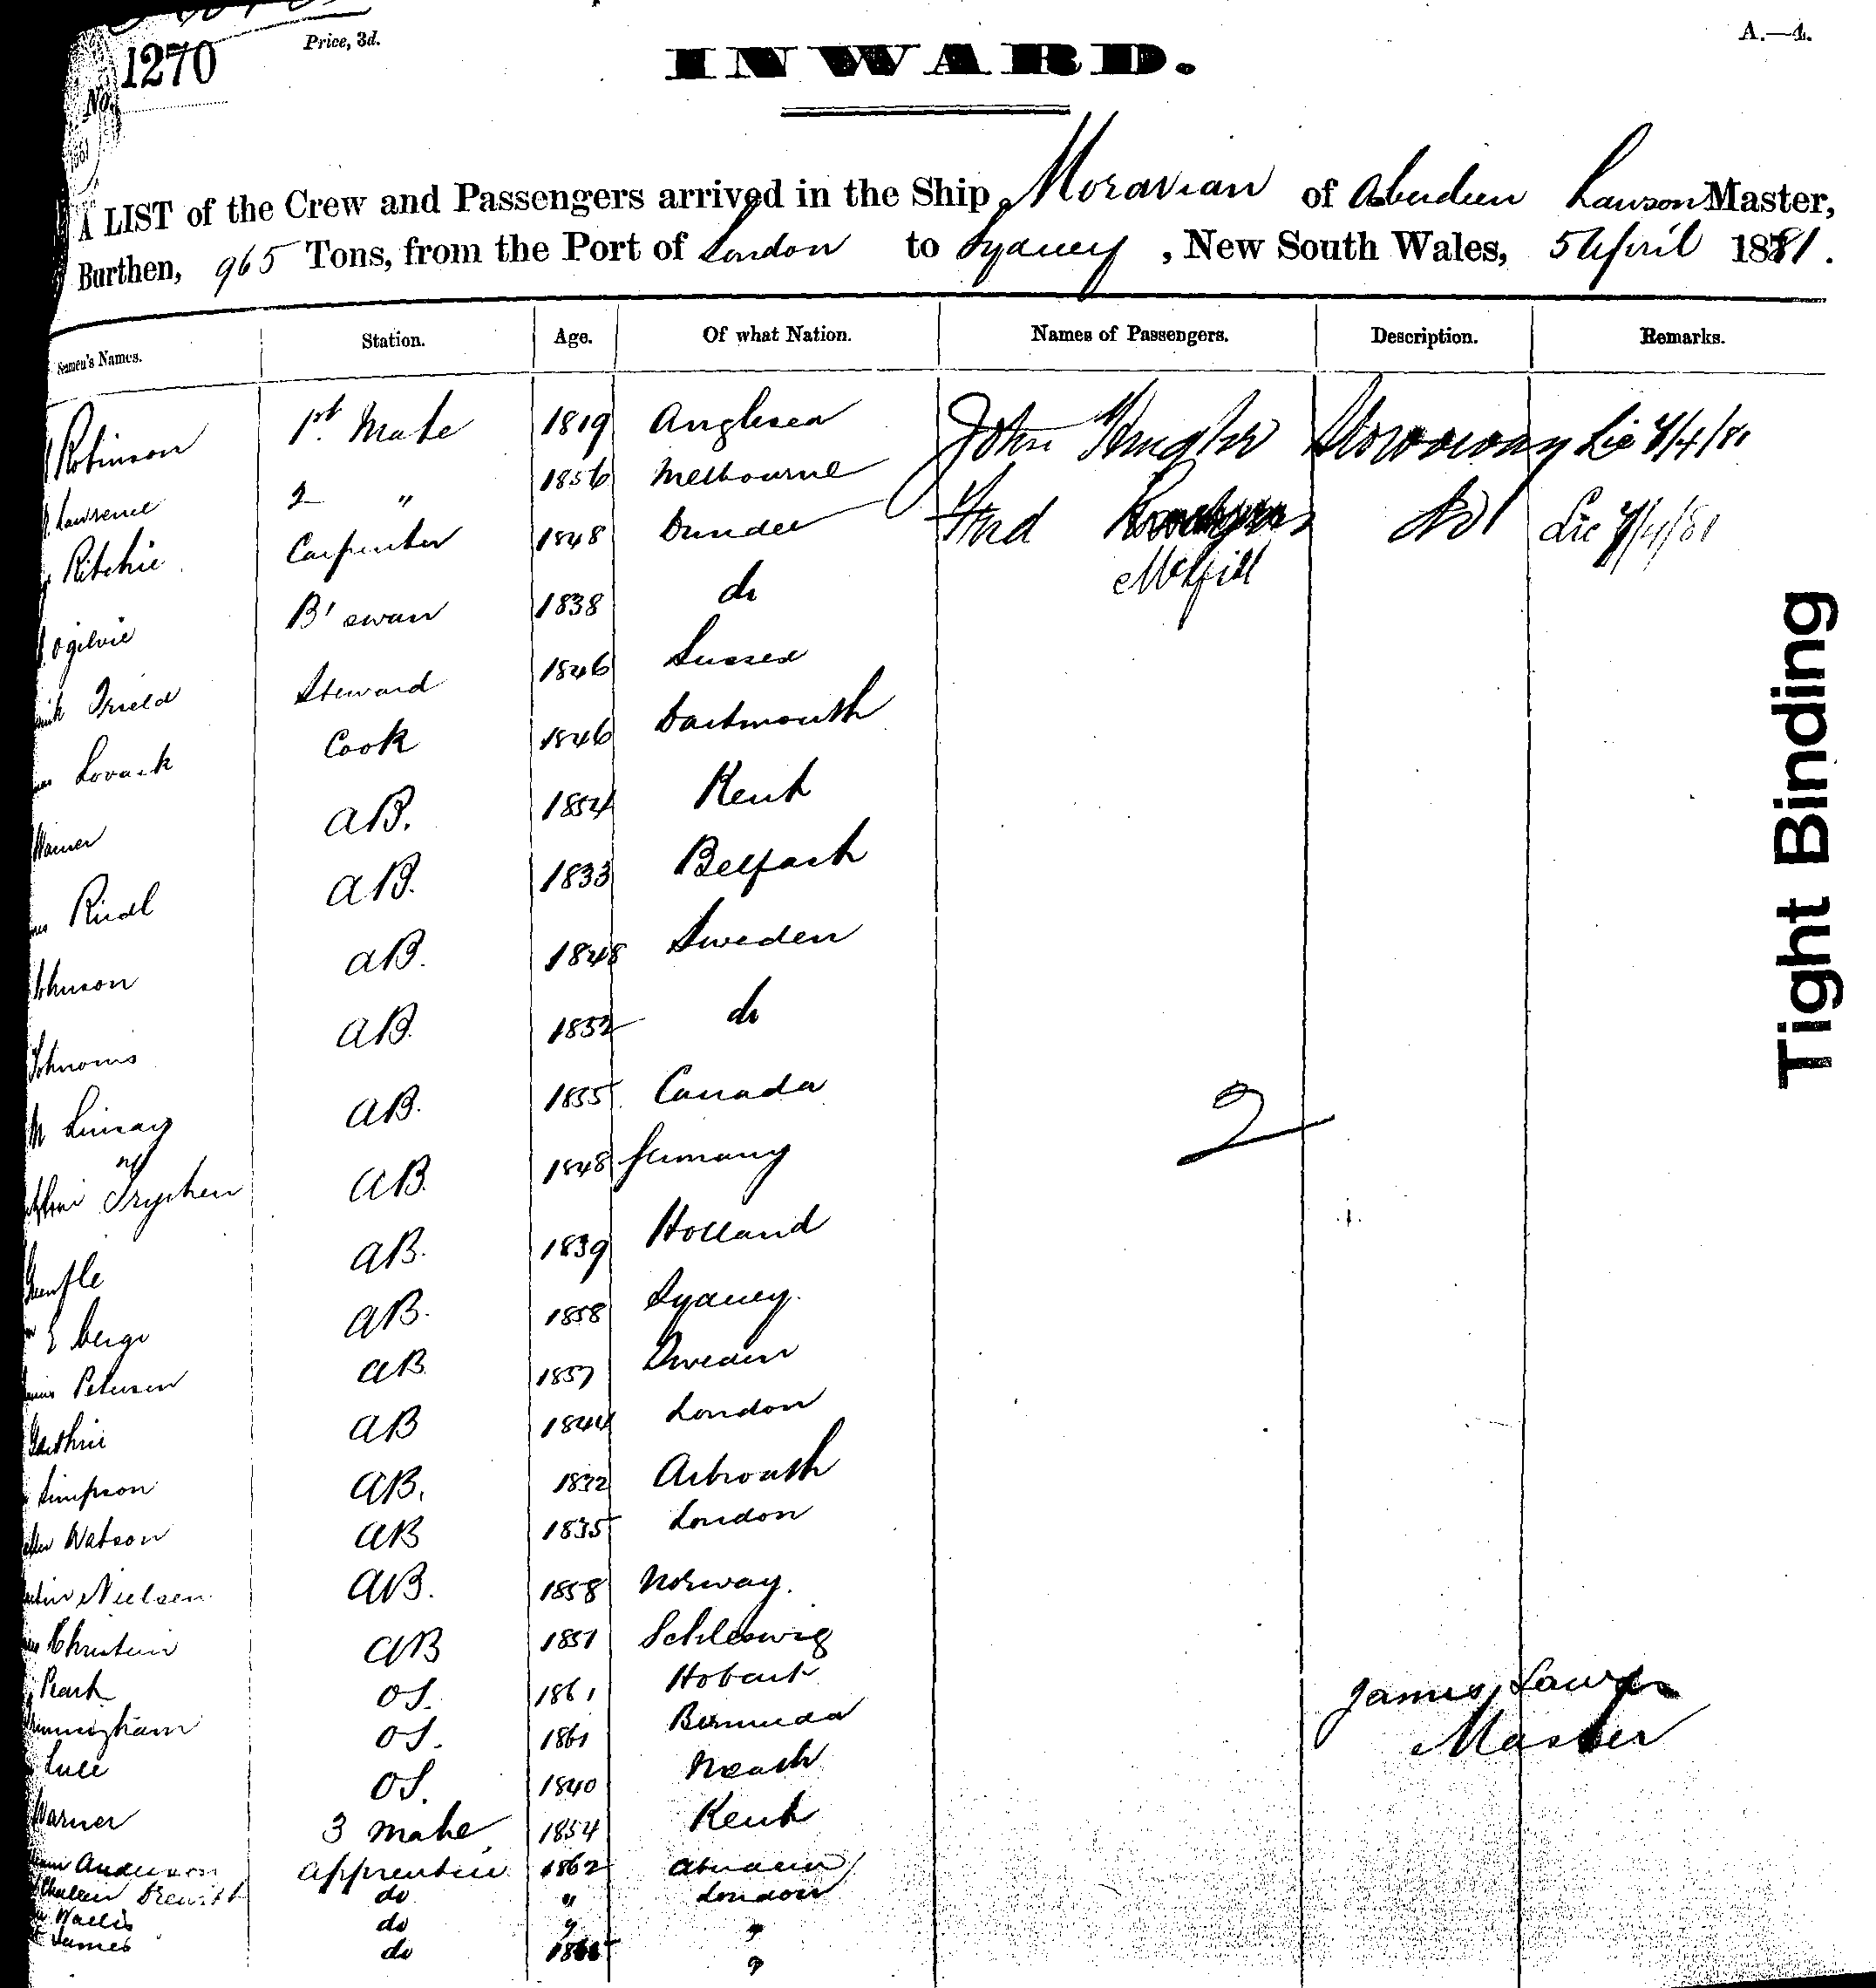 1270
No.
Price, 3d.
INWARD.
A.—4.
A LIST of the Crew and Passengers arrived in the Ship Moravian of Aberdeen Lawson Master,
Burthen, 965 Tons, from the Port of London to Sydney, New South Wales, 5 April 1881.
Seamen's Names. Station. Age. Of what Nation. Names of Passengers. Description. Remarks.
Robinson 1st Mate 1819 Anglesea John Stowaway Lic 7/4/81
Lawrence 2 " 1856 Melbourne Fred McGill do Lic 7/4/81
Ritchie Carpenter 1848 Dundee
Ogilvie B'swan 1838 do
Field Steward 1846 Sussex
Lovack Cook 1846 Dartmouth
Warner AB. 1854 Kent
AB. 1833 Belfast
Johnson AB. 1848 Sweden
AB. 1852 do
AB. 1855 Canada
2
AB. 1848 Germany
AB. 1839 Holland
AB. 1858 Sydney.
Petersen AB 1857 Sweden
Guthrie AB 1844 London
Simpson AB. 1832 Arbroath
Watson AB 1835 London
Nielsen AB. 1858 Norway.
AB 1851 Schleswig
OS. 1861 Hobart
OS. 1861 Bermuda
Luce OS. 1840 Neath
Warner 3 Mate 1854 Kent
Anderson Apprentice 1862 Aberdeen
do " London
Wallis do " "
James do "
James Lawson
Master
Tight Binding